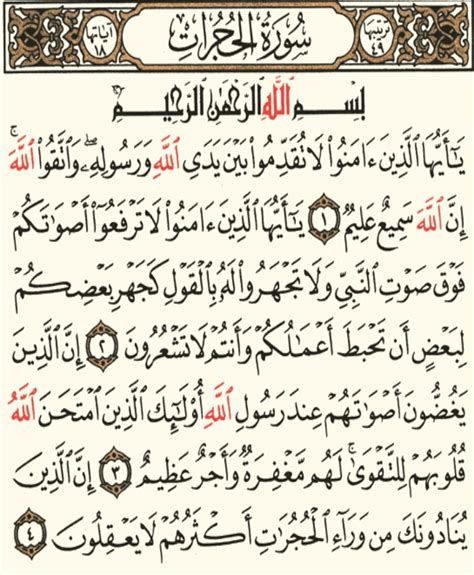 ترتيبها ٤٩ سُورَةُ الحُجُرَاتِ آياتها ١٨
بِسْمِ ٱللَّهِ ٱلرَّحْمَٰنِ ٱلرَّحِيمِ
يَٰٓأَيُّهَا ٱلَّذِينَ ءَامَنُوا۟ لَا تُقَدِّمُوا۟ بَيْنَ يَدَىِ ٱللَّهِ وَرَسُولِهِۦ ۖ وَٱتَّقُوا۟ ٱللَّهَ ۚ
إِنَّ ٱللَّهَ سَمِيعٌ عَلِيمٌ ١ يَٰٓأَيُّهَا ٱلَّذِينَ ءَامَنُوا۟ لَا تَرْفَعُوٓا۟ أَصْوَٰتَكُمْ
فَوْقَ صَوْتِ ٱلنَّبِىِّ وَلَا تَجْهَرُوا۟ لَهُۥ بِٱلْقَوْلِ كَجَهْرِ بَعْضِكُمْ
لِبَعْضٍ أَن تَحْبَطَ أَعْمَٰلُكُمْ وَأَنتُمْ لَا تَشْعُرُونَ ٢ إِنَّ ٱلَّذِينَ
يَغُضُّونَ أَصْوَٰتَهُمْ عِندَ رَسُولِ ٱللَّهِ أُو۟لَٰٓئِكَ ٱلَّذِينَ ٱمْتَحَنَ ٱللَّهُ
قُلُوبَهُمْ لِلتَّقْوَىٰ ۚ لَهُم مَّغْفِرَةٌ وَأَجْرٌ عَظِيمٌ ٣ إِنَّ ٱلَّذِينَ
يُنَادُونَكَ مِن وَرَآءِ ٱلْحُجُرَٰتِ أَكْثَرُهُمْ لَا يَعْقِلُونَ ٤